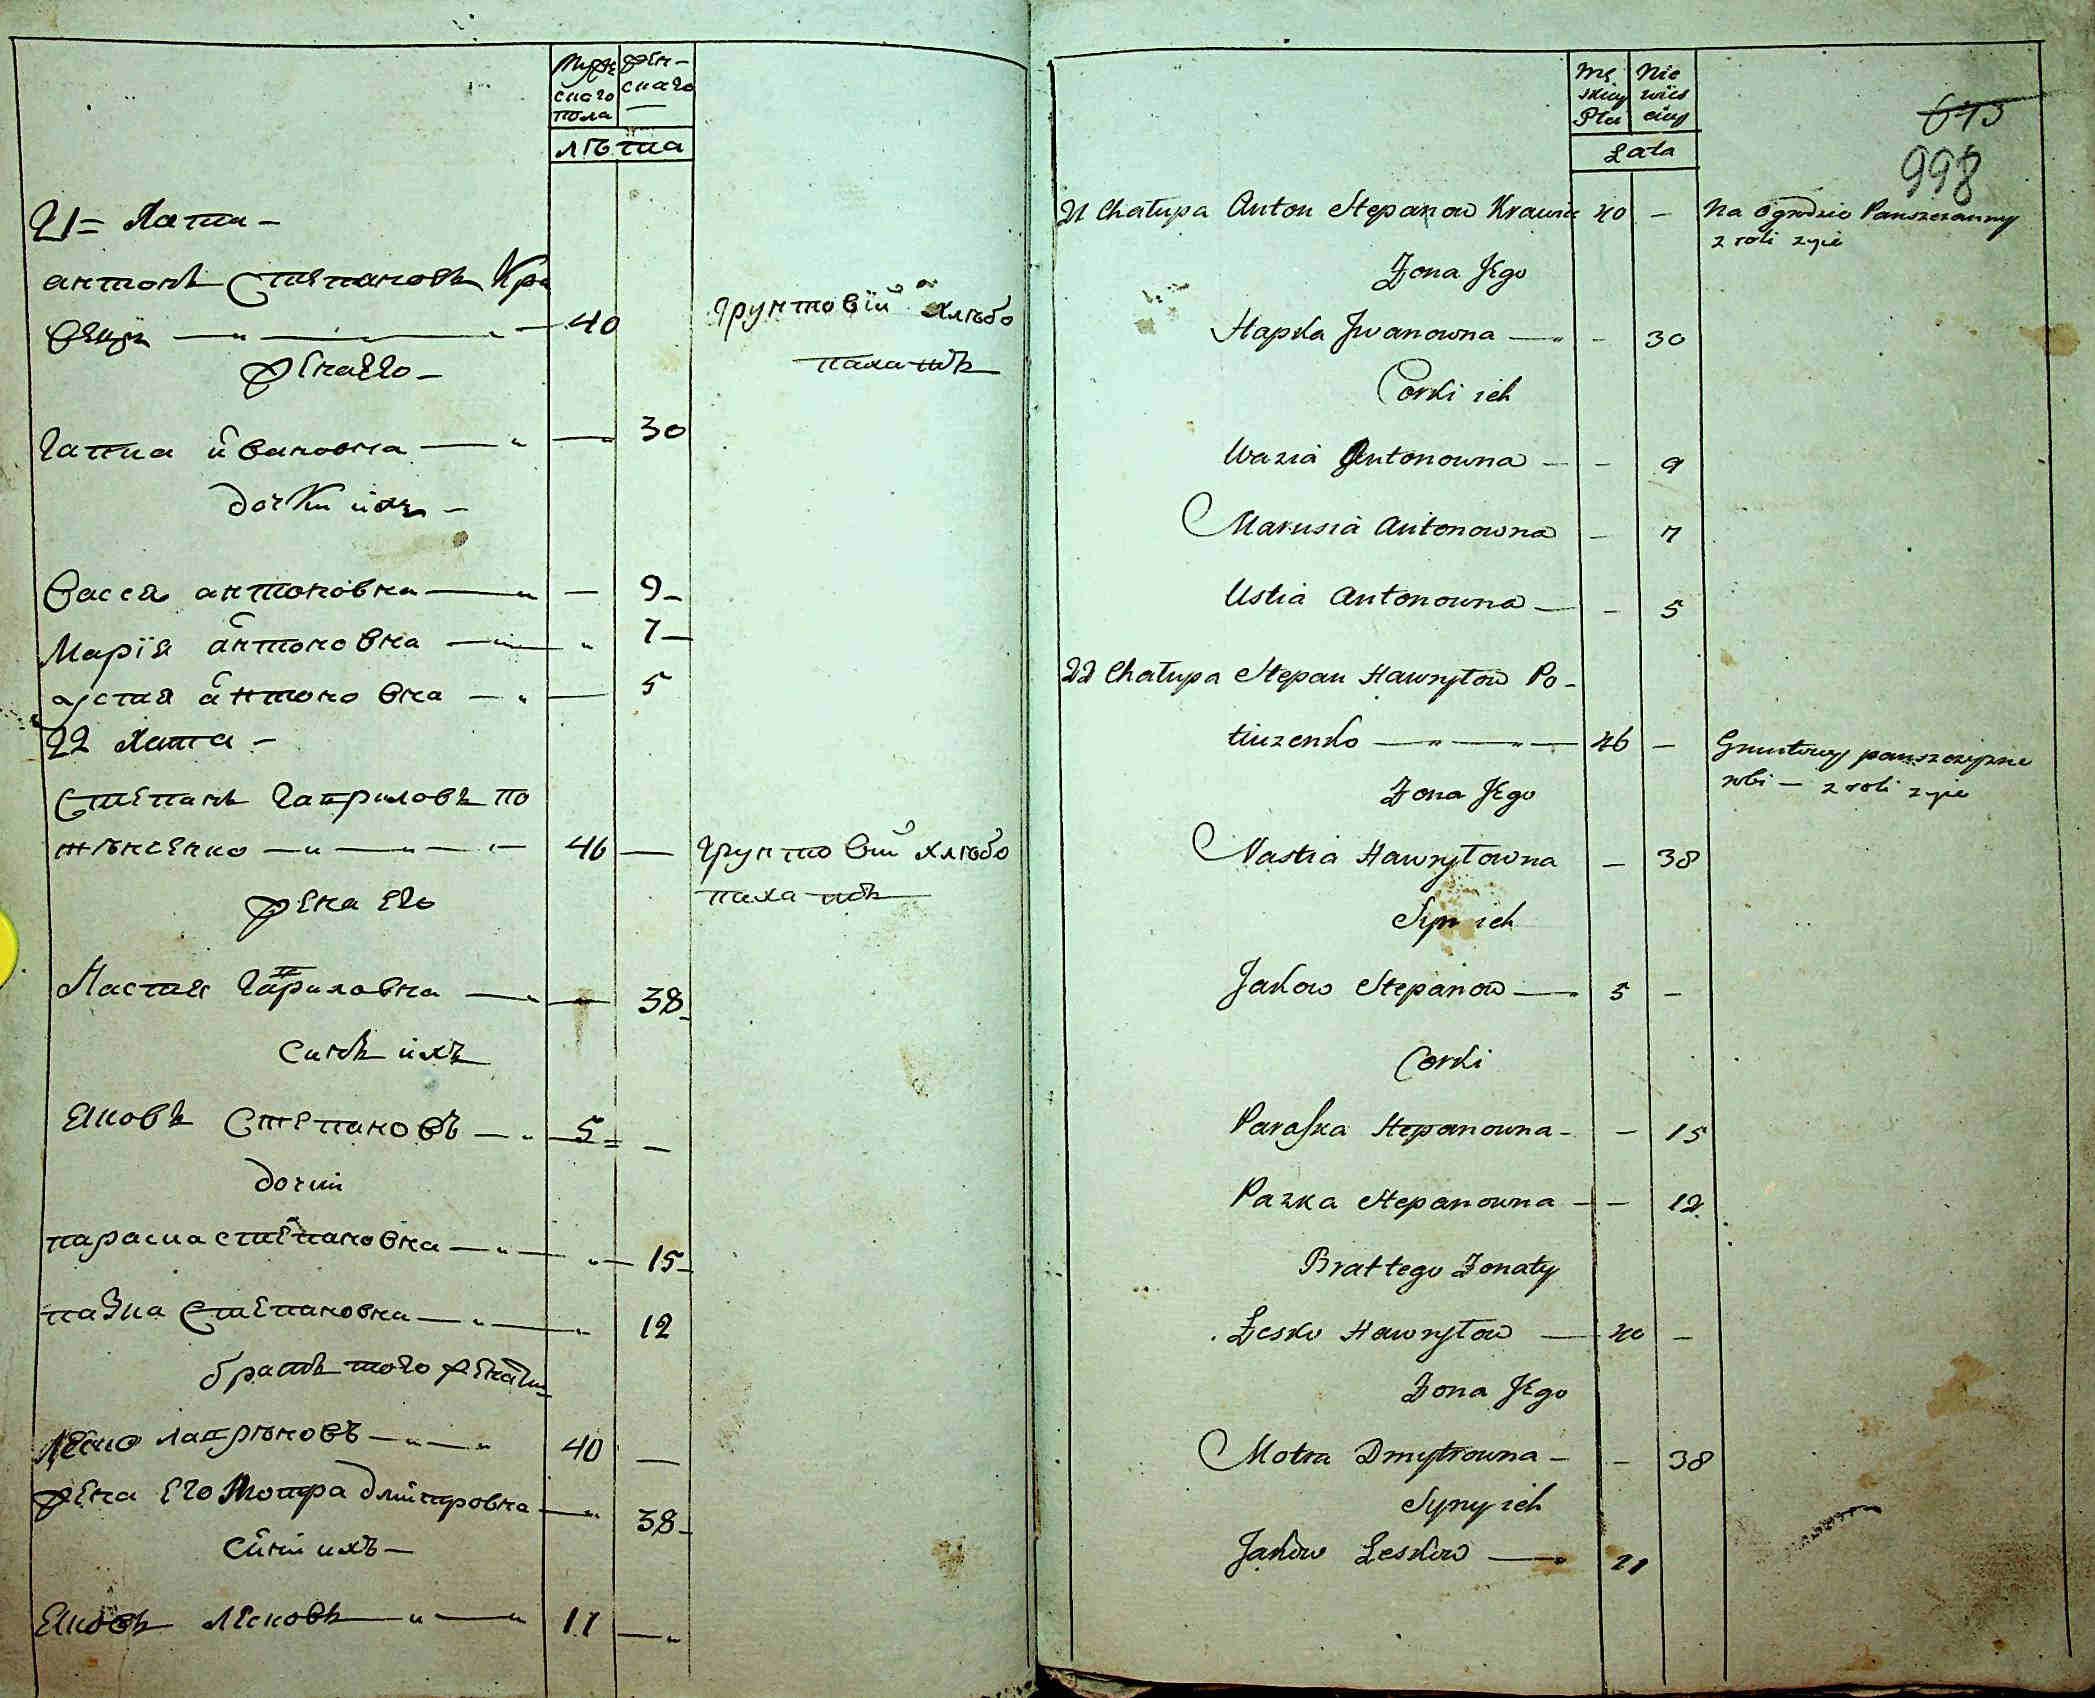 Мужескаго пола
женскаго
лѣта
21= Хата -
антонъ Степановъ Кра
вецъ 40 грунтовій хлѣбо
пахатъ
жена Его -
гапка ивановна 30
дочки ихъ -
Васся антоновна 9
Марія антоновна 7
устия антоновна 5
22 Хата -
Степанъ гаврыловъ по
тюженко 46 — грунтовій хлѣбо
пахатъ
жена Его
Настия гавриловна 38
синъ ихъ
Яковъ Степановъ 5 —
дочки
параска степановна 15
пазка Степановна 12
братъ того женатий
Леско гавриловъ 40 —
жена Его Мотра дмитровна 38
сини ихъ -
Яковъ Лесковъ 11 —
Mę
skiey
Płci
Nie
wieś
ciey
Lata
673
998
21 Chałupa Anton Stepanow Krawiec 40 - Na ogrodzie Panszczanny
z roli zyie
Zona Jego
Hapka Iwanowna - 30
Corki ich
Wazia Antonowna - 9
Marusia Antonowna - 7
Ustia Antonowna - 5
22 Chałupa Stepan Hawryłow Po-
tiuzenko 46 - Gruntowy panszczyzne
robi - z roli zyie
Zona Jego
Nastia Hawryłowna - 38
Syn ich
Jakow Stepanow 5 -
Corki
Paraska Stepanowna - 15
Pazka Stepanowna - 12
Brat tego Zonaty
Lesko Hawryłow 40 -
Zona Jego
Motra Dmytrowna - 38
Syny ich
Jakow Leskow 21